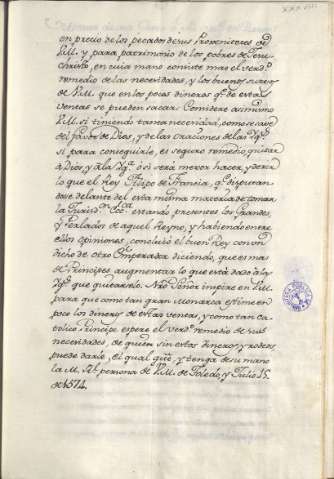 en precio de los pecados de sus Progenitores de
V.M. y para patrimonio de los pobres de Jesu
christo, en cuia mano consiste mas el verd.º
remedio de las necesidades, y los buenos sucesos
de V.M. que en los pocos dineros q.e de estas
ventas se pueden sacar. Considere asimismo
V.M. si tiniendo tanta necesidad, como se ve
del favor de Dios, y de las oraciones de las Yg.s
si para conseguirle, es seguro remedio, quitar
a Dios, y a la Yg.a ò si será menor hacer, y decir
lo que el Rey Filipo de Francia, q.e disputan
dose delante del esta misma materia de tomar
la Jurisd.on Ecc.ca estando presentes los Grandes,
y Perlados de aquel Reyno, y habiendo entre
ellos opiniones, concluió el buen Rey con un
dicho de otro Emperador diciendo, que es mas
de Principes augmentar lo que está dado a la
Yg.a que quitarselo. Nro Señor inspire en V.M.
para que como tan gran Monarca estime en
poco los dineros de estas ventas, y como tan Ca
tolico Principe espere el verd.º remedio de sus
necesidades, de quien sin estos dineros, y rodeos
puede darlo, el qual guíe, y tenga de su mano
la M. Rl. persona de V.M. de Toledo, y Julio 15.
de 1574.